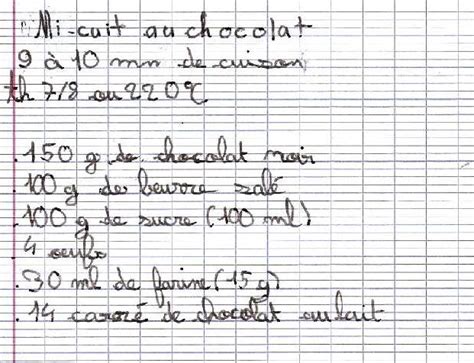 Mi-cuit au chocolat
9 à 10 mm de cuisson
th 7/8 ou 220°C
.150 g de chocolat noir
.100 g de beurre salé
.100 g de sucre (100 ml)
.4 oeufs
.30 ml de farine (15 g)
.14 carré de chocolat au lait